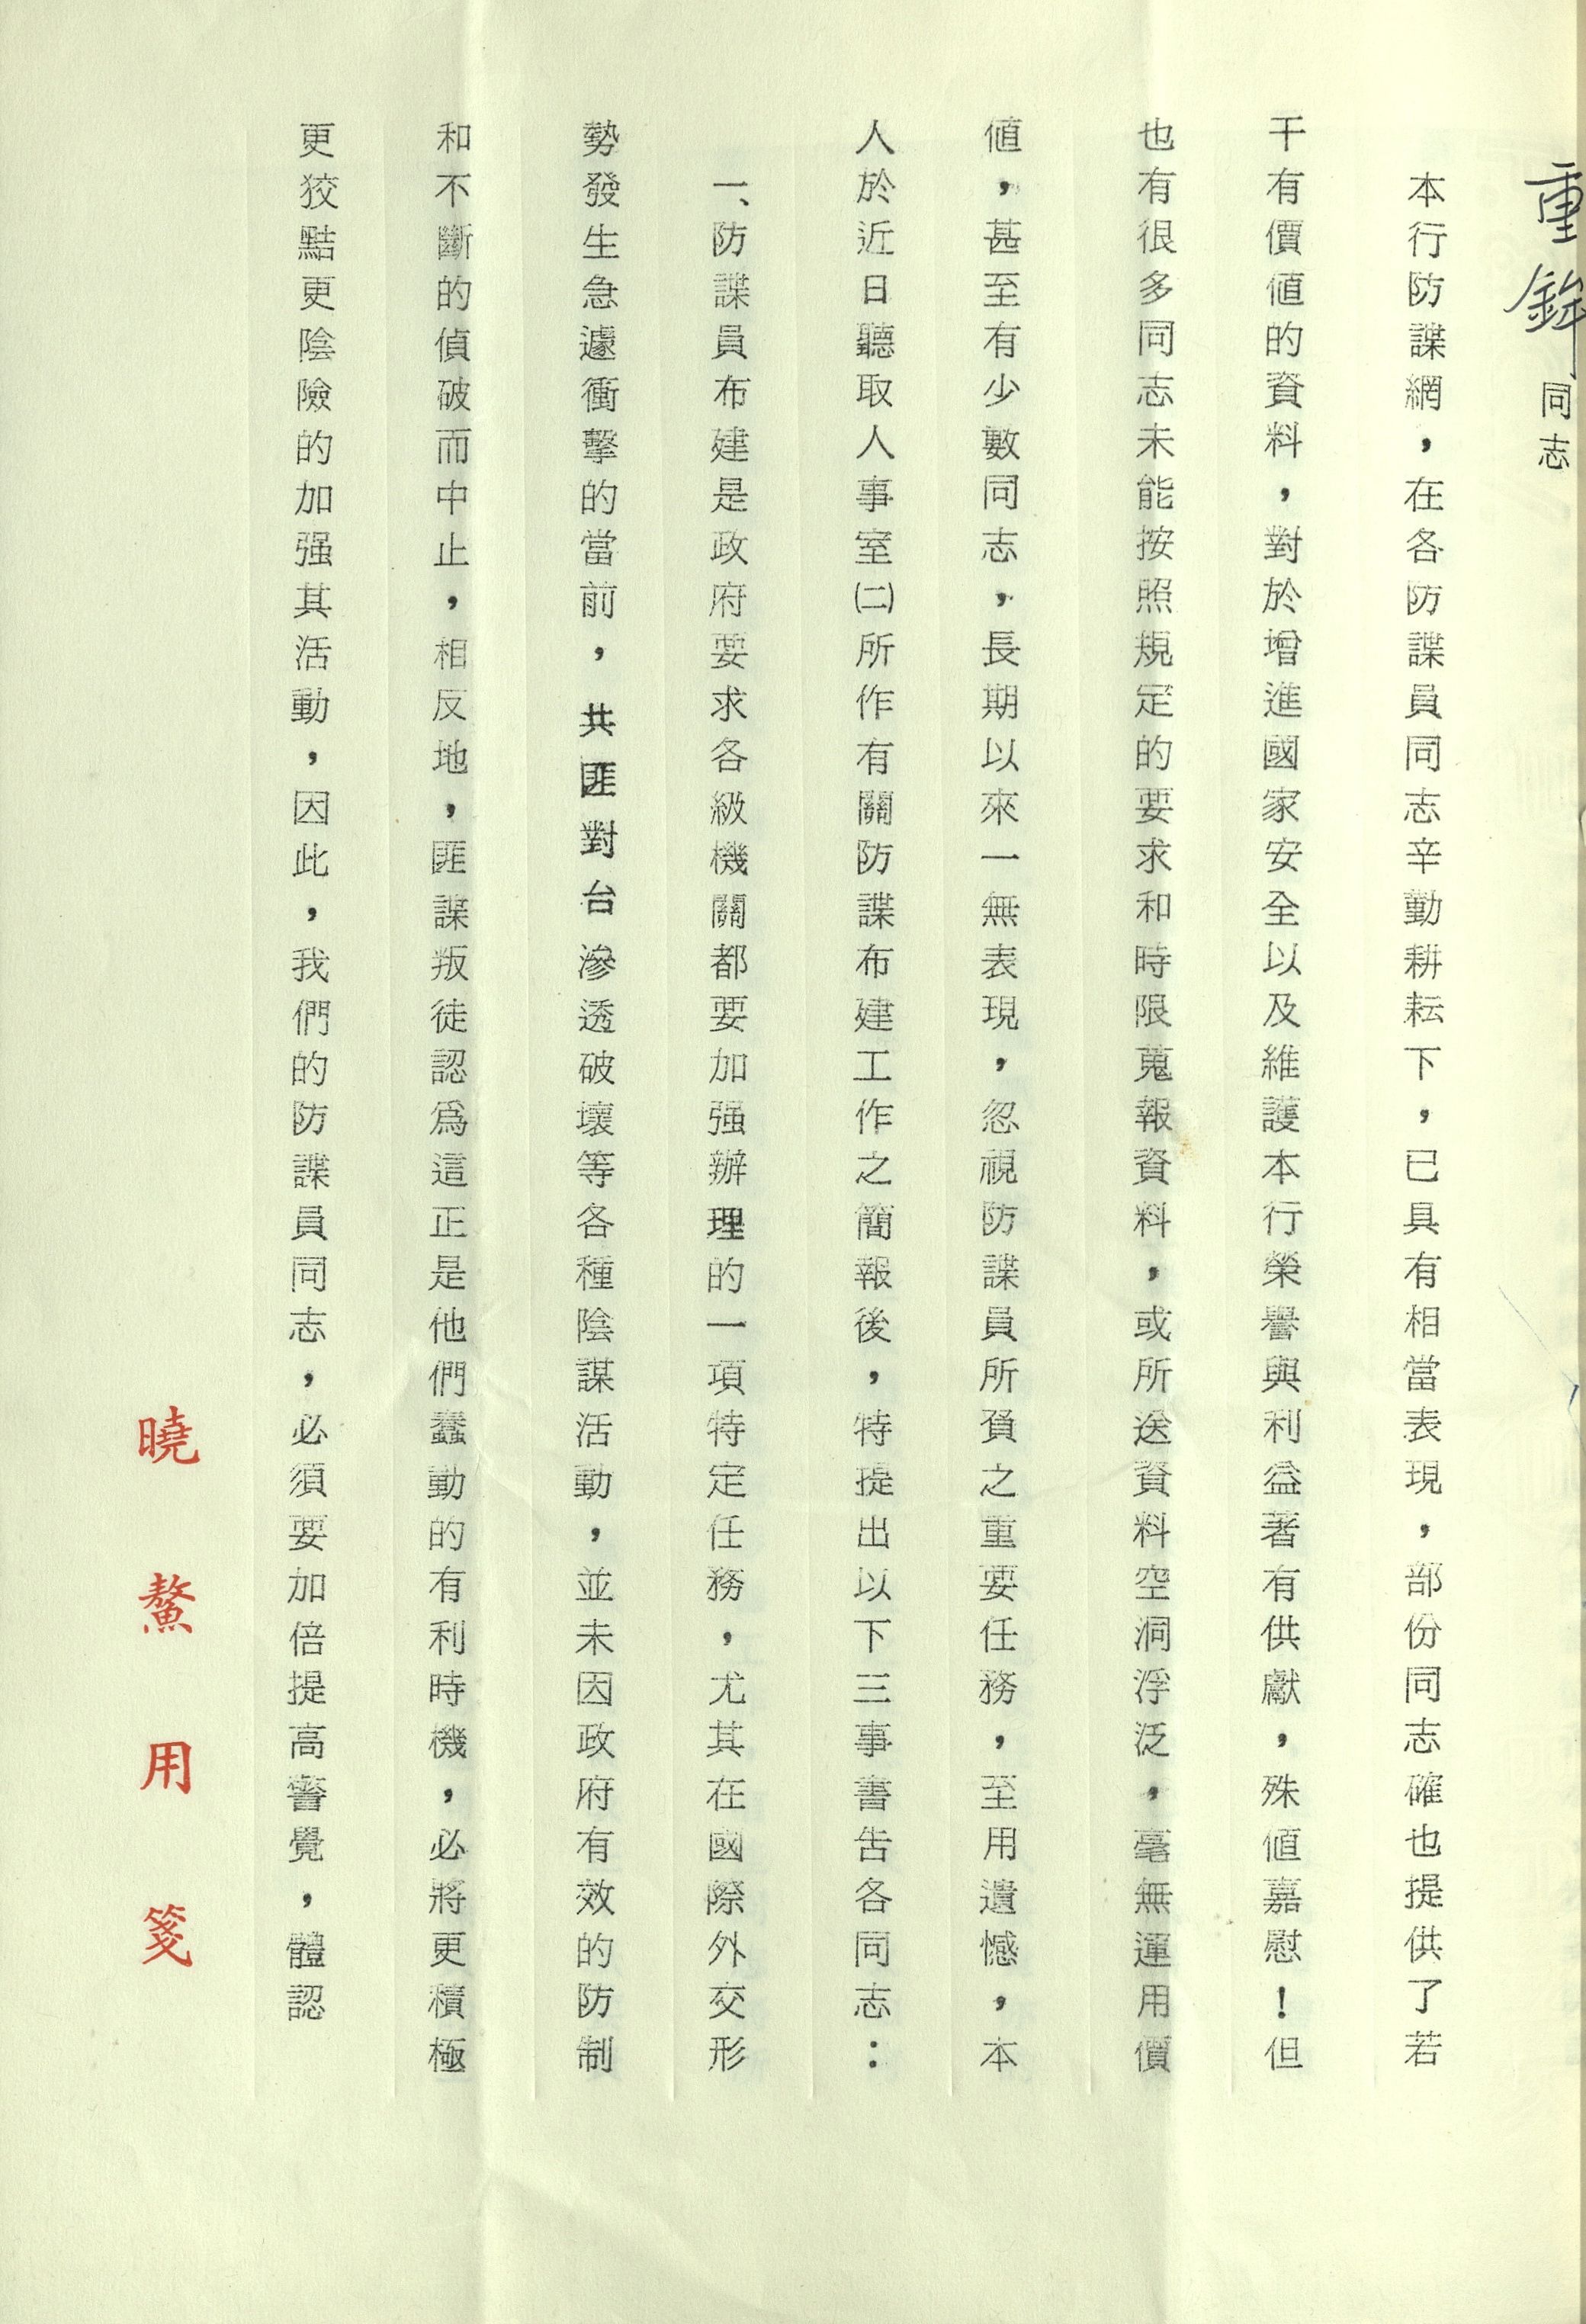 重鉾同志
本行防諜網，在各防諜員同志辛勤耕耘下，已具有相當表現，部份同志確也提供了若
干有價值的資料，對於增進國家安全以及維護本行榮譽與利益著有供獻，殊值嘉慰！但
也有很多同志未能按照規定的要求和時限蒐報資料，或所送資料空洞浮泛，毫無運用價
值，甚至有少數同志，長期以來一無表現，忽視防諜員所負之重要任務，至用遺憾，本
人於近日聽取人事室㈡所作有關防諜布建工作之簡報後，特提出以下三事書告各同志：
一、防諜員布建是政府要求各級機關都要加强辦理的一項特定任務，尤其在國際外交形
勢發生急遽衝擊的當前，共匪對台滲透破壞等各種陰謀活動，並未因政府有效的防制
和不斷的偵破而中止，相反地，匪諜叛徒認爲這正是他們蠢動的有利時機，必將更積極
更狡黠更陰險的加强其活動，因此，我們的防諜員同志，必須要加倍提高警覺，體認
曉鰲用箋